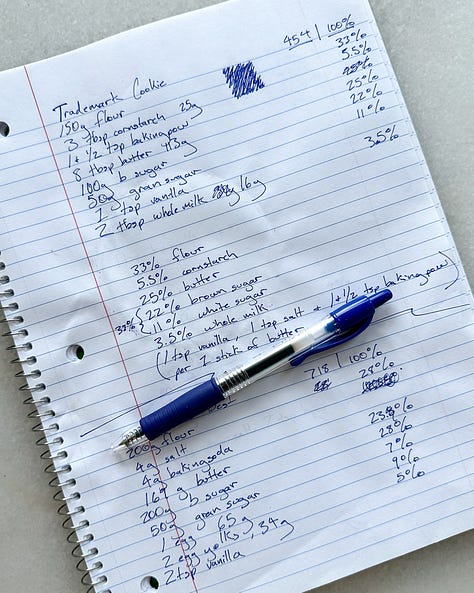 454 | 100%
Trademark Cookie
150g flour 33%
3 tbsp cornstarch 25g 5.5%
1 + 1/2 tsp baking pow
8 tbsp butter 113g 25%
100g b sugar 22%
50g gran sugar 11%
1 tsp vanilla
2 tbsp whole milk 16g 3.5%
33% flour
5.5% cornstarch
25% butter
33% { 22% brown sugar
11% white sugar
3.5% whole milk
(1 tsp vanilla, 1 tsp salt + 1 + 1/2 tsp baking pow)
per 1 stick of butter
718 | 100%
200g flour 28%
4g salt
4g baking soda
169 g butter 23.5%
200g b sugar 28%
50g gran sugar 7%
1 egg 65g 9%
2 egg yolks, 34g 5%
2 tsp vanilla